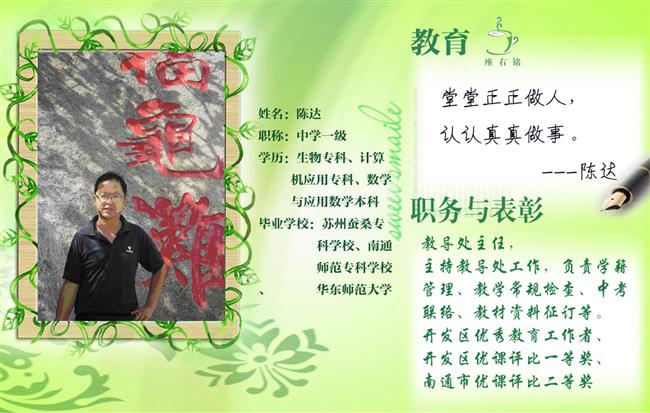 教育
座右铭
堂堂正正做人，
认认真真做事。
---陈达
姓名：陈达
职称：中学一级
学历：生物专科、计算
机应用专科、数学
与应用数学本科
毕业学校：苏州蚕桑专
科学校、南通
师范专科学校
、 华东师范大学
职务与表彰
教导处主任，
主持教导处工作，负责学籍
管理、教学常规检查、中考
联络、教材资料征订等。
开发区优秀教育工作者、
开发区优课评比一等奖、
南通市优课评比二等奖
龟
难